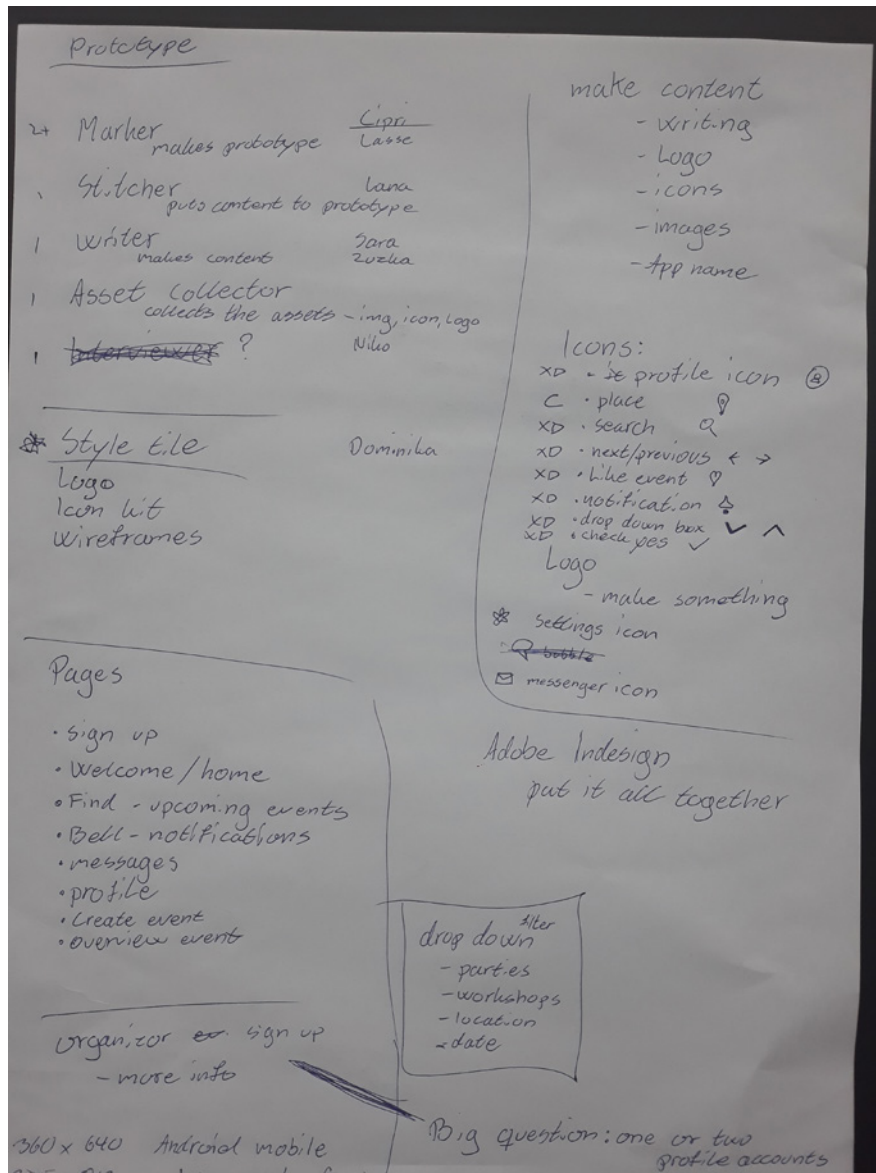 Prototype
2+ Marker Cipri
makes prototype Lasse
Stitcher Lana
puts content to prototype
1 writer Sara
makes content Zuzka
1 Asset collector
collects the assets - img, icon, logo
1 Interviewer ? Niko
Style tile Dominika
Logo
Icon kit
wireframes
Pages
• sign up
• Welcome/home
• Find - upcoming events
• Bell - notifications
• messages
• profile
• Create event
• overview event
organizor sign up
- more info
360 x 640 Android mobile
make content
- writing
- Logo
- icons
- images
- App name
Icons:
XD - profile icon
C • place
XD • search
XD • next/previous ← →
XD • Like event ♡
XD • notification
XD • drop down box ∨ ∧
XD • check yes ✓
Logo
- make something
settings icon
bubble
messenger icon
Adobe Indesign
put it all together
filter
drop down
- parties
- workshops
- location
- date
Big question: one or two
profile accounts